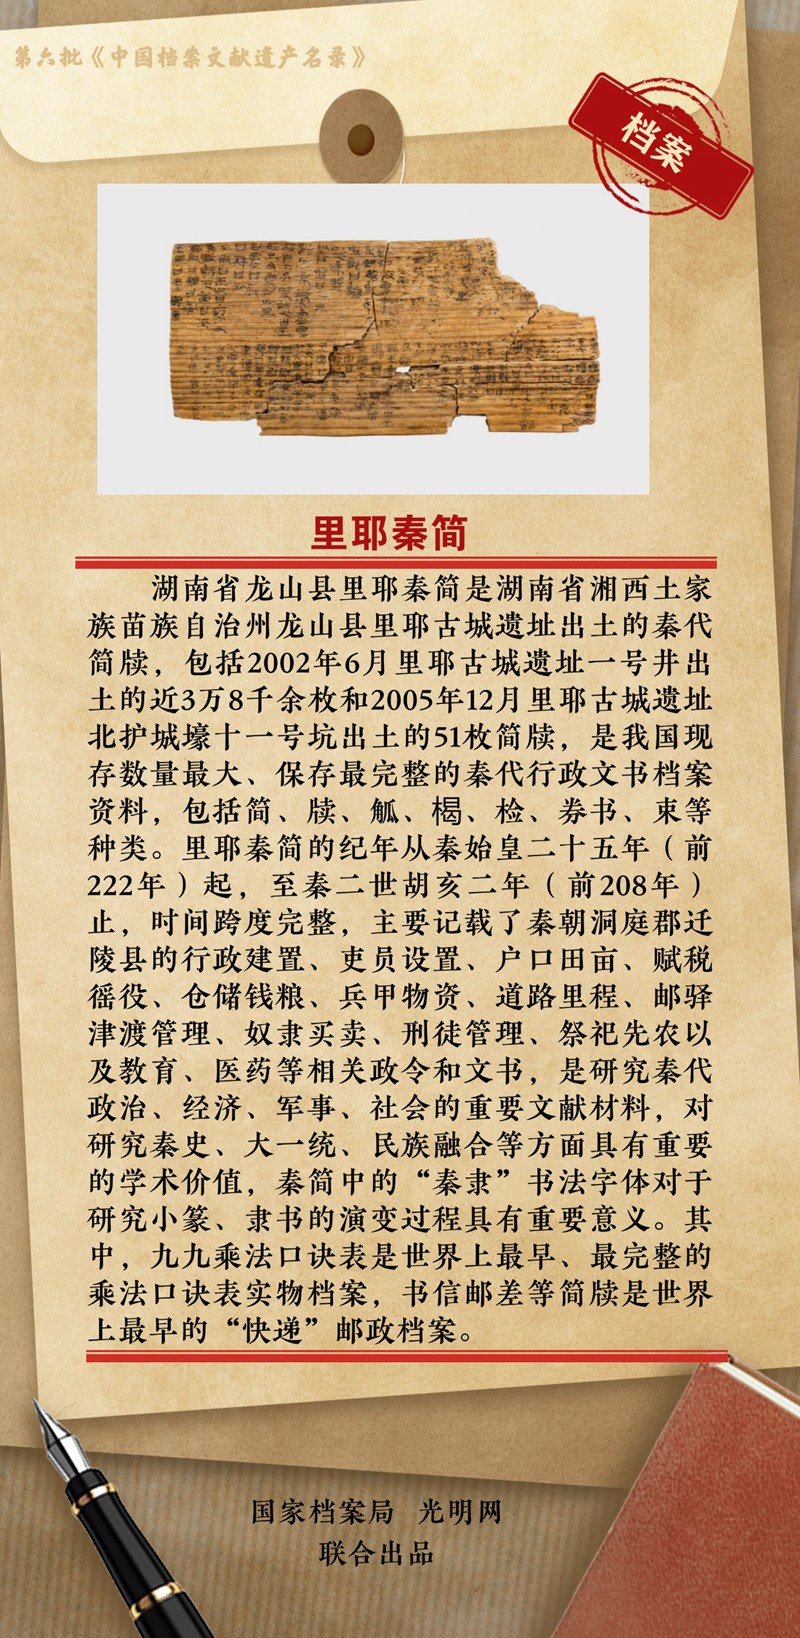 第六批《中国档案文献遗产名录》
档案
里耶秦简
湖南省龙山县里耶秦简是湖南省湘西土家
族苗族自治州龙山县里耶古城遗址出土的秦代
简牍，包括2002年6月里耶古城遗址一号井出
土的近3万8千余枚和2005年12月里耶古城遗址
北护城壕十一号坑出土的51枚简牍，是我国现
存数量最大、保存最完整的秦代行政文书档案
资料，包括简、牍、觚、楬、检、券书、束等
种类。里耶秦简的纪年从秦始皇二十五年（前
222年）起，至秦二世胡亥二年（前208年）
止，时间跨度完整，主要记载了秦朝洞庭郡迁
陵县的行政建置、吏员设置、户口田亩、赋税
徭役、仓储钱粮、兵甲物资、道路里程、邮驿
津渡管理、奴隶买卖、刑徒管理、祭祀先农以
及教育、医药等相关政令和文书，是研究秦代
政治、经济、军事、社会的重要文献材料，对
研究秦史、大一统、民族融合等方面具有重要
的学术价值，秦简中的“秦隶”书法字体对于
研究小篆、隶书的演变过程具有重要意义。其
中，九九乘法口诀表是世界上最早、最完整的
乘法口诀表实物档案，书信邮差等简牍是世界
上最早的“快递”邮政档案。
国家档案局 光明网
联合出品